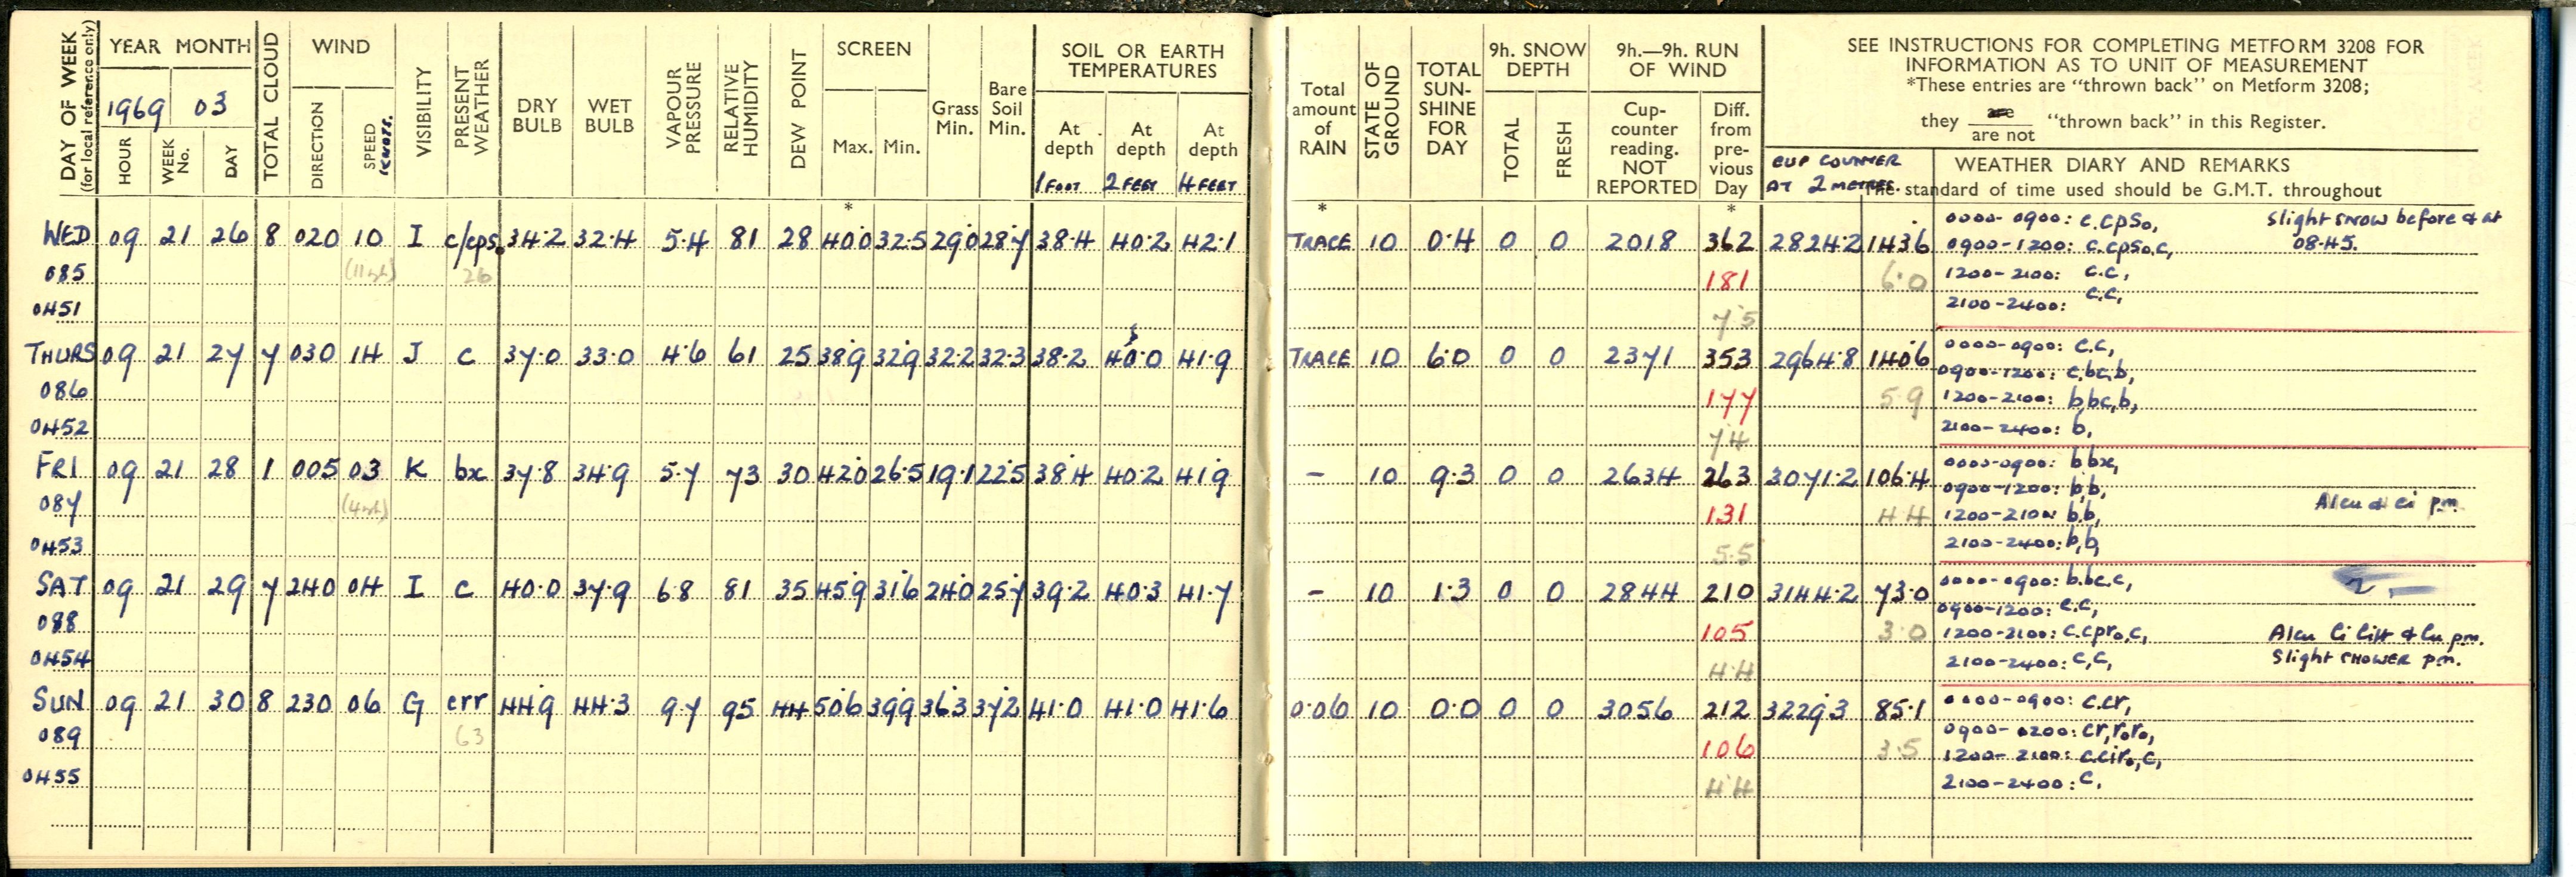 DAY OF WEEK
(for local reference only)
YEAR MONTH
1969 03
HOUR WEEK No. DAY
TOTAL CLOUD
WIND
DIRECTION SPEED KNOTS.
VISIBILITY
PRESENT WEATHER
DRY BULB
WET BULB
VAPOUR PRESSURE
RELATIVE HUMIDITY
DEW POINT
SCREEN
Max. Min.
Grass Min.
Bare Soil Min.
SOIL OR EARTH TEMPERATURES
At depth At depth At depth
1 FOOT 2 FEET 4 FEET
Total amount of RAIN
STATE OF GROUND
TOTAL SUN-SHINE FOR DAY
9h. SNOW DEPTH
TOTAL FRESH
9h.—9h. RUN OF WIND
Cup-counter reading. NOT REPORTED
Diff. from pre-vious Day
SEE INSTRUCTIONS FOR COMPLETING METFORM 3208 FOR
INFORMATION AS TO UNIT OF MEASUREMENT
*These entries are "thrown back" on Metform 3208;
they are / are not "thrown back" in this Register.
CUP COUNTER
AT 2 METRES.
WEATHER DIARY AND REMARKS
The standard of time used should be G.M.T. throughout
* * *
WED 09 21 26 8 020 10 I c/cps. 34.2 32.4 5.4 81 28 40.0 32.5 29.0 28.7 38.4 40.2 42.1 TRACE 10 0.4 0 0 2018 362 2824.2 143.6
085 26 181 6.0
0451 7.5
0000-0900: c.cpso,
0900-1200: c.cpso.c,
1200-2100: c.c,
2100-2400: c.c,
Slight SNOW before & at
08.45.
THURS 09 21 27 7 030 14 J c 37.0 33.0 4.6 61 25 38.9 32.9 32.2 32.3 38.2 40.0 41.9 TRACE 10 6.0 0 0 2371 353 2964.8 140.6
086 177 5.9
0452 7.4
0000-0900: c.c,
0900-1200: c,bc,b,
1200-2100: b,bc,b,
2100-2400: b,
FRI 09 21 28 1 005 03 K bx 37.8 34.9 5.7 73 30 42.0 26.5 19.1 22.5 38.4 40.2 41.9 - 10 9.3 0 0 2634 263 3071.2 106.4
087 131 4.4
0453 5.5
0000-0900: b bx,
0900-1200: b,b,
1200-2100: b.b,
2100-2400: b,b,
Alcu & ci p.m.
SAT 09 21 29 7 240 04 I c 40.0 37.9 6.8 81 35 45.9 31.6 24.0 25.7 39.2 40.3 41.7 - 10 1.3 0 0 2844 210 3144.2 73.0
088 105 3.0
0454 4.4
0000-0900: b.bc.c,
0900-1200: c.c,
1200-2100: c.cpro.c,
2100-2400: c,c,
Alcu Ci CiSt & Cu p.m.
Slight SHOWER p.m.
SUN 09 21 30 8 230 06 G crr 44.9 44.3 9.7 95 44 50.6 39.9 36.3 37.2 41.0 41.0 41.6 0.06 10 0.0 0 0 3056 212 3229.3 85.1
089 63 106 3.5
0455 4.4
0000-0900: c.cr,
0900-1200: cr,roro,
1200-2100: c.ciro,c,
2100-2400: c,